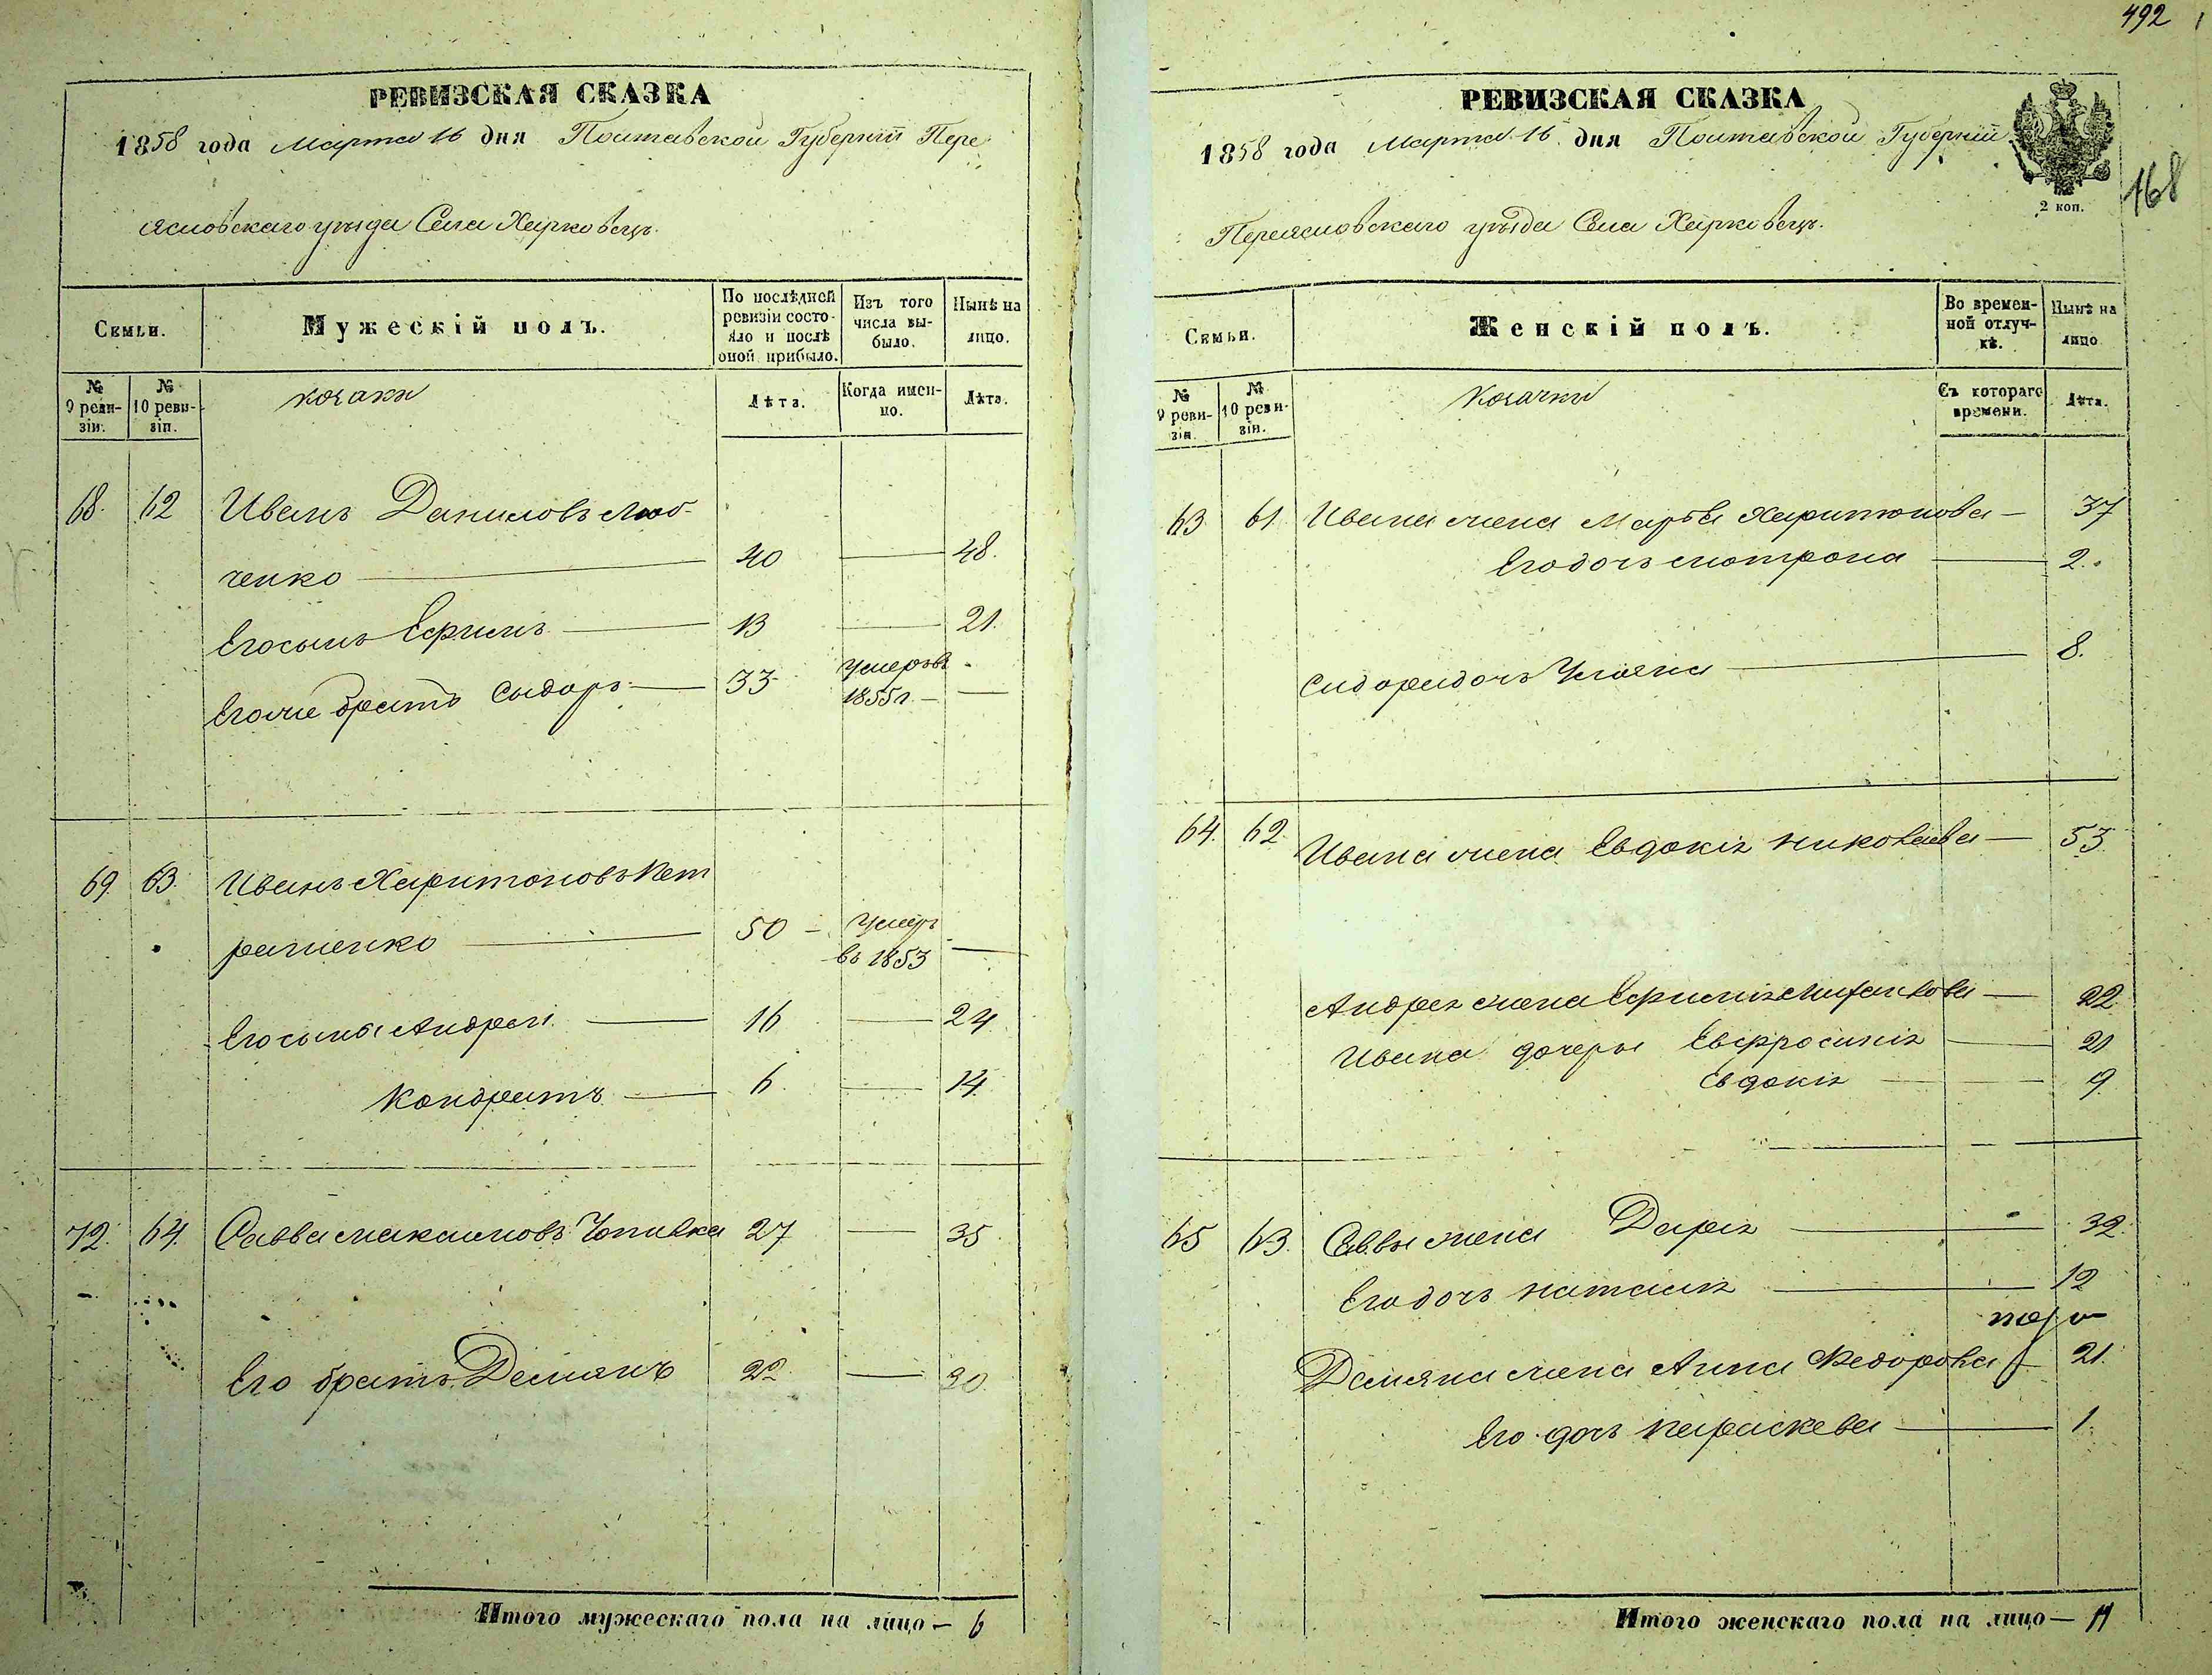 РЕВИЗСКАЯ СКАЗКА
1858 года Марта 16 дня Полтавской Губерніи Пере
яславскаго уѣзда Села Харковецъ.
Семьи.
Мужескій полъ.
По послѣдней ревизіи состояло и послѣ оной прибыло.
Изъ того числа выбыло.
Нынѣ на лицо.
№ 9 ревизіи.
№ 10 ревизіи.
козаки
Лѣта.
Когда именно.
Лѣта.
68. 62 Иванъ Даниловъ Люб-
ченко — 40 — 48.
Его сынъ Ефимъ — 13 — 21.
Егоже братъ Сыдоръ — 33 умеръ въ
1855 г. —
69. 63. Иванъ Харитоновъ Пет
рашенко — 50 — умеръ
въ 1853 —
Его сыны Андрей — 16 — 24
Кондратъ — 6. — 14.
72. 64. Савва Максимовъ Чопивка 27 — 35.
Его братъ Демянъ 22. — 30.
Итого мужескаго пола на лицо — 6
492
РЕВИЗСКАЯ СКАЗКА
1858 года Марта 16 дня Полтавской Губерніи
2 коп.
168
Переяславскаго уѣзда Села Харковецъ.
Семьи.
Женскій полъ.
Во временной отлучкѣ.
Нынѣ на лицо
№ 9 ревизіи.
№ 10 ревизіи.
Козачки
Съ котораго времени.
Лѣта.
63 61. Ивана жена Марѳа Харитонова — 37
Его дочь Мотрона — 2.
Сидора дочь Уляна — 8.
64. 62 Ивана жена Евдокія Николаева — 53
Андрея жена Ефимія Михайлова — 22
Ивана дочеры Евфросинія — 21
Евдокія — 9.
65 63. Саввы жена Дарія — 32.
Его дочь Наталія — 12
Демяна жена Анна Ѳедорова — 21.
Его дочь Параскева — 1.
Итого женскаго пола на лицо — 11